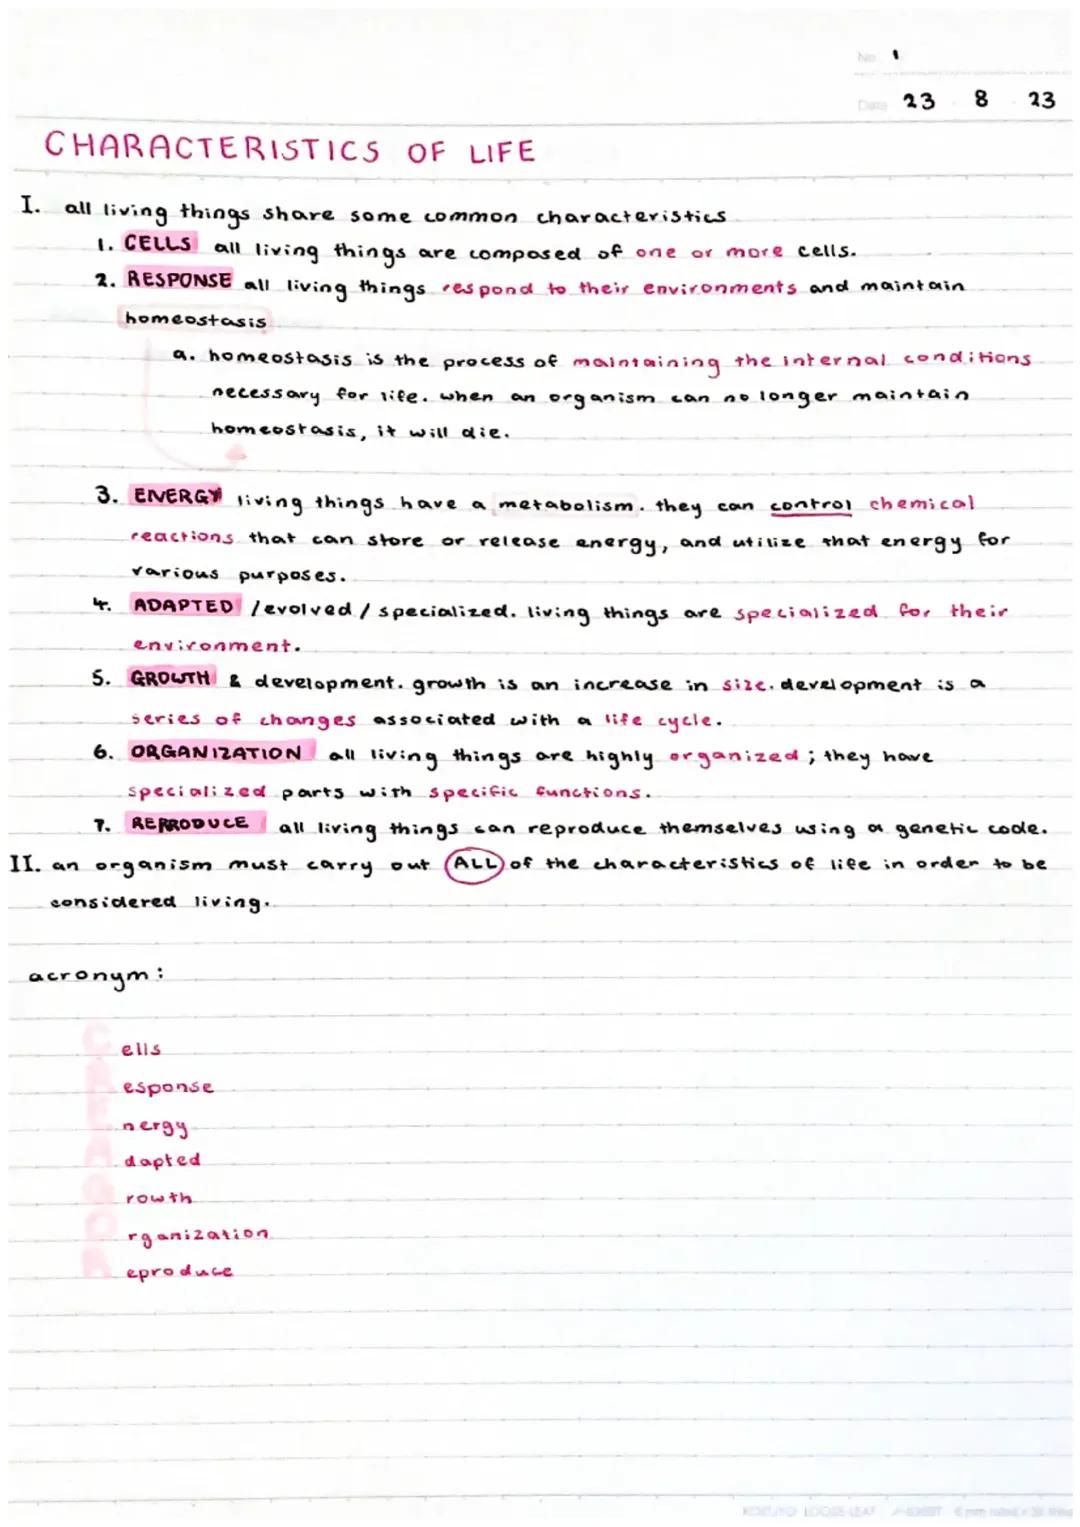 No. 1
Date 23 8 23
CHARACTERISTICS OF LIFE
I. all living things share some common characteristics
1. CELLS all living things are composed of one or more cells.
2. RESPONSE all living things respond to their environments and maintain
homeostasis
a. homeostasis is the process of maintaining the internal conditions
necessary for life. when an organism can no longer maintain
homeostasis, it will die.
3. ENERGY living things have a metabolism. they can control chemical
reactions that can store or release energy, and utilize that energy for
various purposes.
4. ADAPTED /evolved/specialized. living things are specialized for their
environment.
5. GROWTH & development. growth is an increase in size. development is a
series of changes associated with a life cycle.
6. ORGANIZATION all living things are highly organized; they have
specialized parts with specific functions.
7. REPRODUCE all living things can reproduce themselves using a genetic code.
II. an organism must carry out ALL of the characteristics of life in order to be
considered living.
acronym:
Cells
Response
Energy
Adapted
Growth
Organization
Reproduce
KOKUYO LOOSE-LEAF